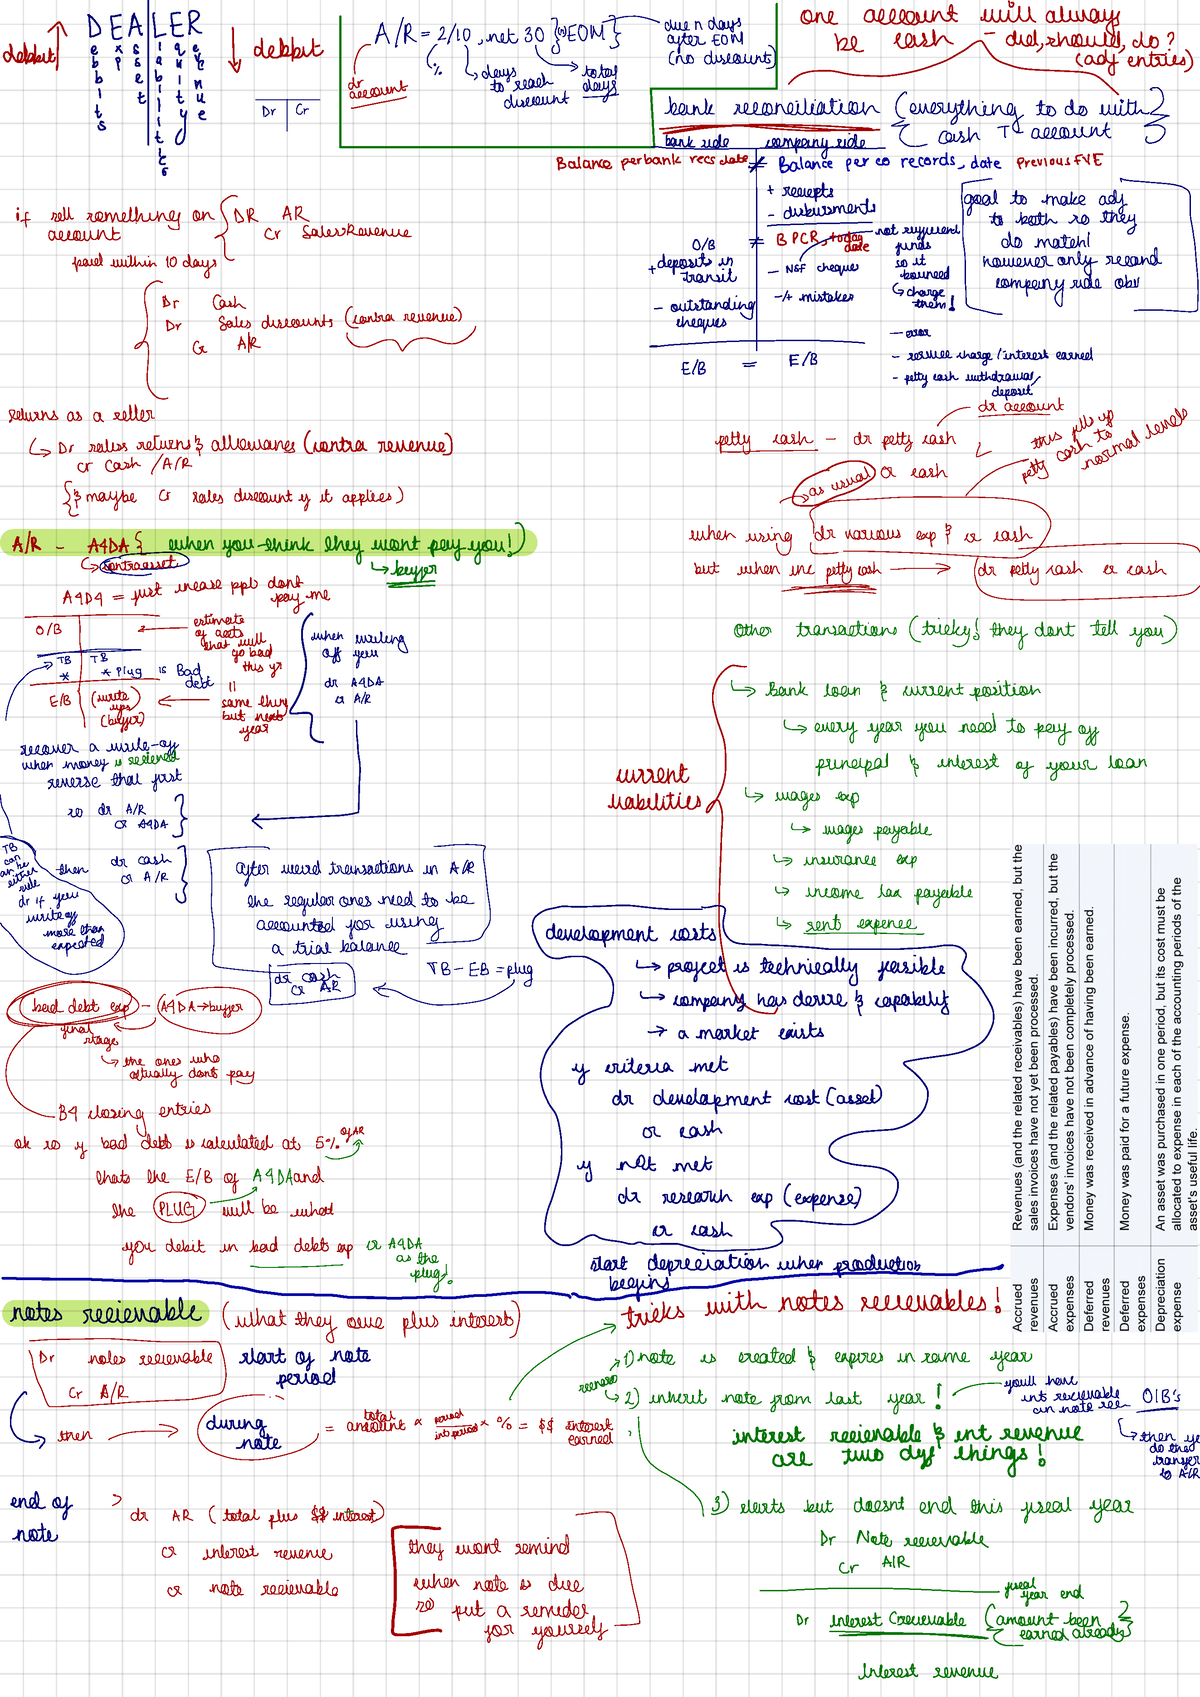 debbit
DEALER
debbits
exp
asset
liabilities
equity
revenue
debbit
Dr | Cr
A/R = 2/10, net 30 {(n) EOM}
dr account
%
days to reach discount
total days
due n days
after EOM
(no discount)
one account will always
be cash - did, should, do?
(adj entries)
bank reconciliation
(everything to do with
cash T account
bank side
company side
Balance per bank recs date ≠ Balance per co records, date previous FYE
+ receipts
- disbursments
O/B ≠ B PCR, today date
+ deposits in
transit
- NSF cheque
not sufficient
funds
so it
bounced
↳ charge
them!
- outstanding
cheques
-/+ mistakes
E/B = E/B
- error
- service charge / interest earned
- petty cash withdrawal/
deposit
goal to make adj
to both so they
do match!
however only record
company side obv
if sell something on
account
DR AR
Cr Sales Revenue
paid within 10 days
Dr Cash
Dr Sales discounts (contra revenue)
Cr A/R
returns as a seller
↳ Dr sales returns & allowances (contra revenue)
cr Cash / A/R
{& maybe Cr sales discount if it applies)
petty cash - dr petty cash
dr account
as usual cr cash
this fills up
petty cash to
normal levels
when using dr various exp & cr cash
but when inc petty cash → dr petty cash cr cash
A/R - A4DA { when you think they wont pay you!)
↳ contra asset
↳ buffer
A4DA = just incase ppl dont
pay me
O/B
estimate
of accts
that will
go bad
this yr
TB | TB
* | * Plug is Bad
debt
E/B
(write
ups)
(buffer)
||
same thing
but next
year
when writing
off you
dr A4DA
cr A/R
recover a write-off
when money is recieved
reverse that first
so dr A/R
cr A4DA
then dr cash
cr A/R
TB
can
be
either
side
dr if you
writeoff
more than
expected
after weird transactions in A/R
the regular ones need to be
accounted for using
a trial balance
dr cash
cr AR
TB - EB = plug
bad debt exp - A4DA → buffer
final
stage
↳ the ones who
actually dont pay
B4 closing entries
ok so if bad debt is calculated at 5% of AR
thats the E/B of A4DA and
the PLUG will be what
you debit in bad debt exp
cr A4DA
as the
plug!
Other transactions (tricky! they dont tell you)
current
liabilities
↳ bank loan & current position
↳ every year you need to pay off
principal & interest of your loan
↳ wages exp
↳ wages payable
↳ insurance exp
↳ income tax payable
↳ rent expence
development costs
↳ project is technically feasible
↳ company has desire & capability
→ a market exists
if criteria met
dr development cost (asset)
cr cash
if not met
dr research exp (expense)
cr cash
start depreciation when production
begins
Accrued revenues
Revenues (and the related receivables) have been earned, but the sales invoices have not yet been processed.
Accrued expenses
Expenses (and the related payables) have been incurred, but the vendors' invoices have not been completely processed.
Deferred revenues
Money was received in advance of having been earned.
Deferred expenses
Money was paid for a future expense.
Depreciation expense
An asset was purchased in one period, but its cost must be allocated to expense in each of the accounting periods of the asset's useful life.
notes recievable (what they owe plus interest)
Dr notes recievable
Cr A/R
start of note
period
then → during
note
= total amount × period/int period × % = $$ interest
earned
end of
note
dr AR (total plus $$ interest)
cr interest revenue
cr note recievable
they wont remind
when note is due
so put a remider
for yourself
tricks with notes recievables!
1) note is created & expires in same year
2) inherit note from last year!
youll have
int recievable
an note rec O/B's
↳ then
do the
transfer
to A/R
interest recievable & int revenue
are two diff things!
3) starts but doesnt end this fiscal year
Dr Note recievable
Cr A/R
fiscal
year end
Dr interest recievable (amount been
earned already)
interest revenue